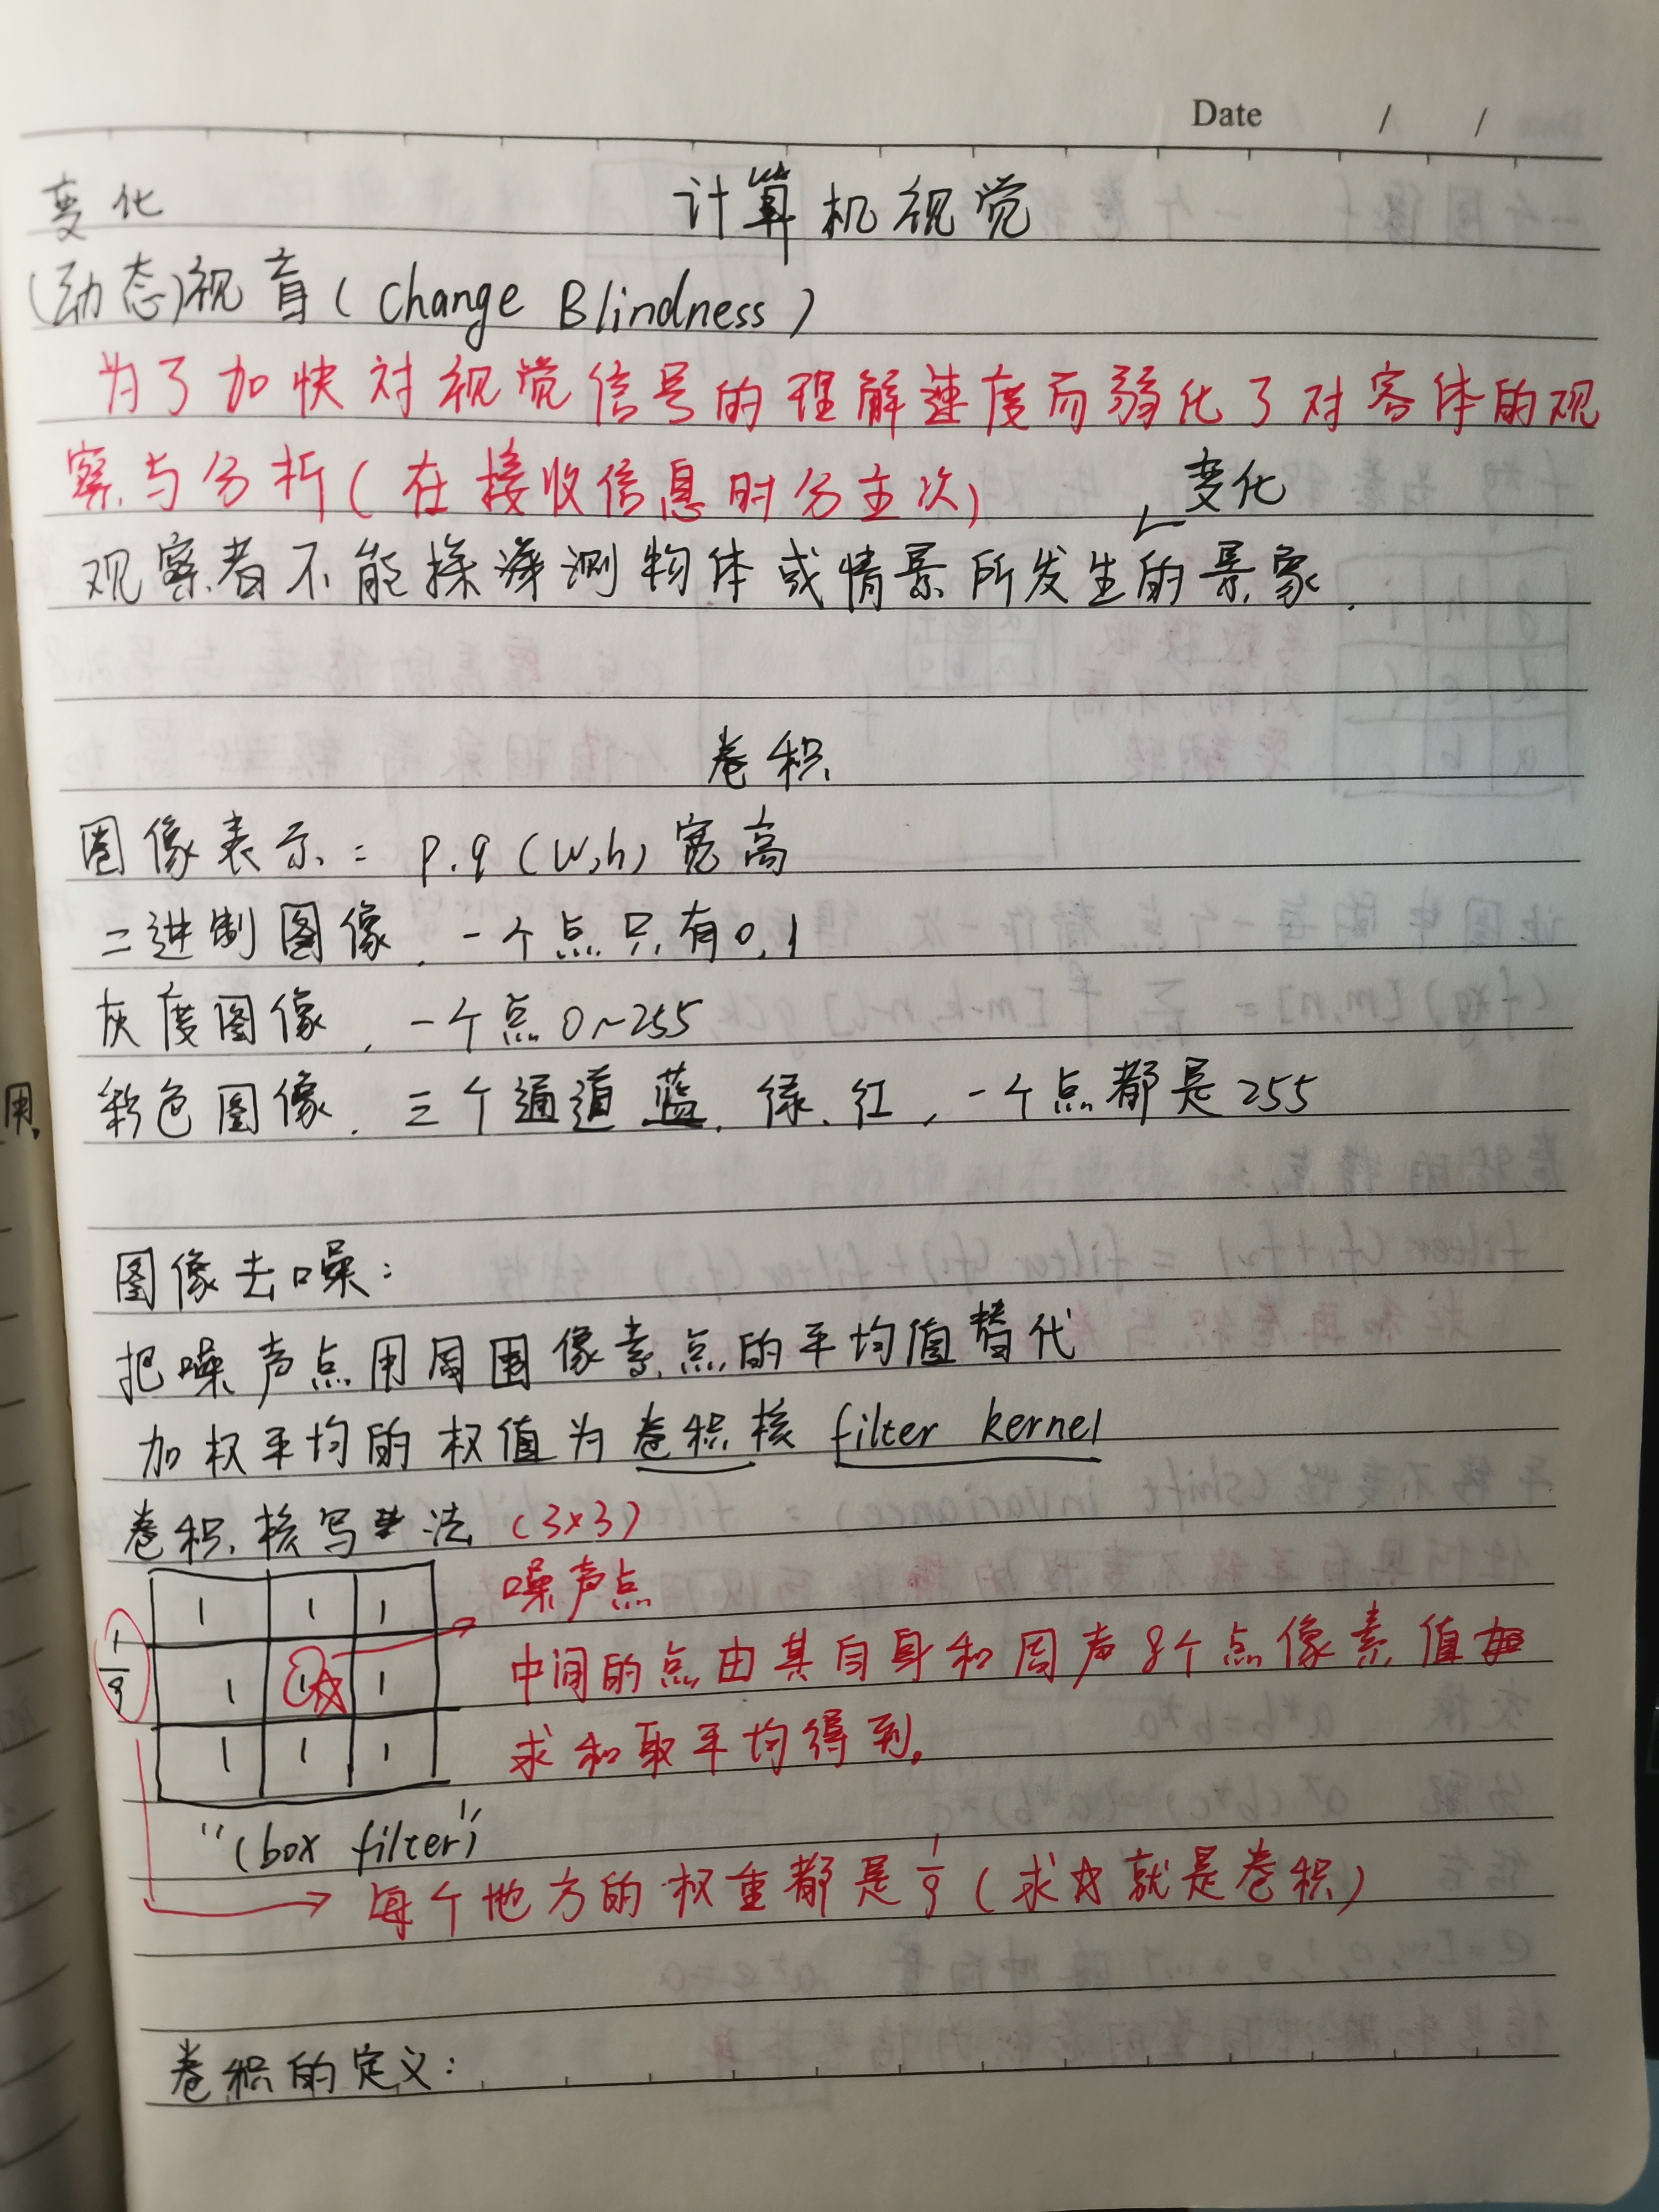 Date / /
变化 计算机视觉
(动态)视盲(Change Blindness)
为了加快对视觉信号的理解速度而弱化了对客体的观
察与分析(在接收信息时分主次)
变化
观察者不能探测物体或情景所发生的景象.
卷积
图像表示: p.q (w,h) 宽高
二进制图像, 一个点只有0,1
灰度图像, 一个点0~255
彩色图像, 三个通道 蓝, 绿, 红, 一个点都是255
图像去噪:
把噪声点用周围像素点的平均值替代
加权平均的权值为卷积核 filter kernel
卷积核写法 (3×3)
1 1 1
噪声点
1/9
1 1 1
中间的点由其自身和周声8个点像素值
1 1 1
求和取平均得到.
"(box filter)"
每个地方的权重都是1/9(求☆就是卷积)
卷积的定义:
用